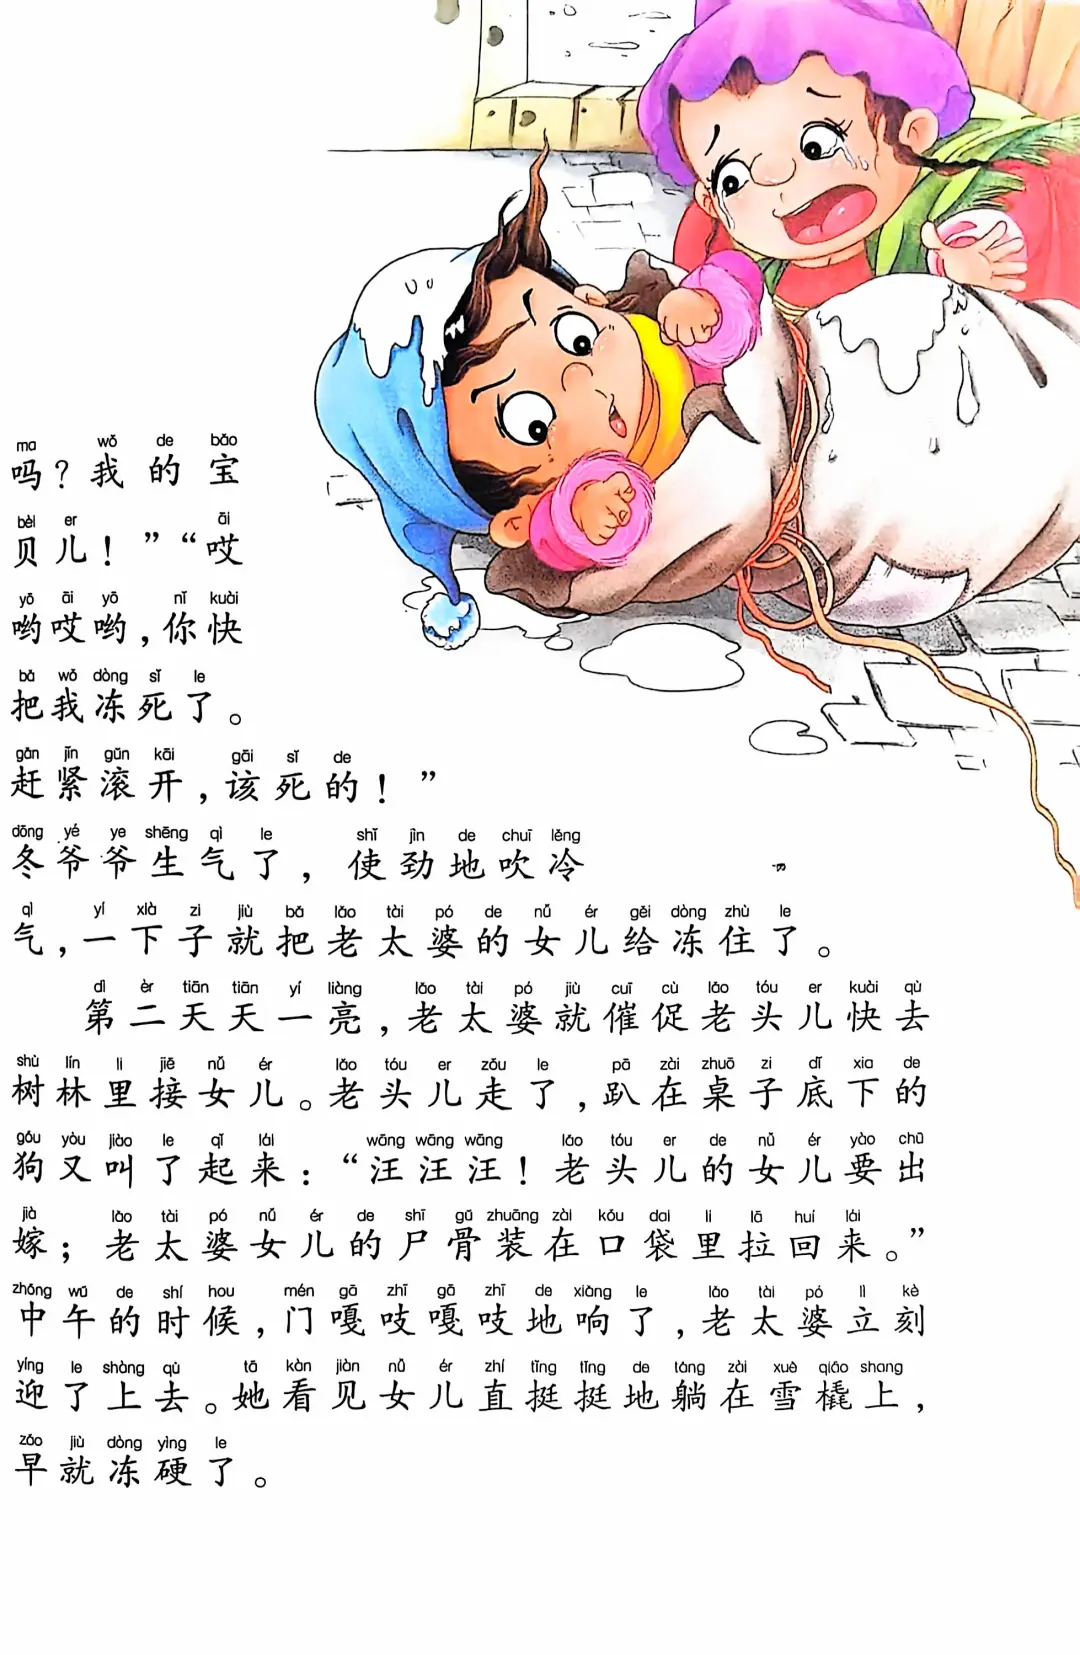 ma wǒ de bǎo
吗？我的宝
bèi er āi
贝儿！”“哎
yō āi yō nǐ kuài
哟哎哟，你快
bǎ wǒ dòng sǐ le
把我冻死了。
gǎn jǐn gǔn kāi gāi sǐ de
赶紧滚开，该死的！”
dōng yé ye shēng qì le shǐ jìn de chuī lěng
冬爷爷生气了，使劲地吹冷
qì yí xià zi jiù bǎ lǎo tài pó de nǚ ér gěi dòng zhù le
气，一下子就把老太婆的女儿给冻住了。
dì èr tiān tiān yí liàng lǎo tài pó jiù cuī cù lǎo tóu er kuài qù
第二天天一亮，老太婆就催促老头儿快去
shù lín li jiē nǚ ér lǎo tóu er zǒu le pā zài zhuō zi dǐ xia de
树林里接女儿。老头儿走了，趴在桌子底下的
gǒu yòu jiào le qǐ lái wāng wāng wāng lǎo tóu er de nǚ ér yào chū
狗又叫了起来：“汪汪汪！老头儿的女儿要出
jià lǎo tài pó nǚ ér de shī gǔ zhuāng zài kǒu dai li lā huí lái
嫁；老太婆女儿的尸骨装在口袋里拉回来。”
zhōng wǔ de shí hou mén gā zhī gā zhī de xiǎng le lǎo tài pó lì kè
中午的时候，门嘎吱嘎吱地响了，老太婆立刻
yíng le shàng qù tā kàn jiàn nǚ ér zhí tǐng tǐng de tǎng zài xuě qiāo shang
迎了上去。她看见女儿直挺挺地躺在雪橇上，
zǎo jiù dòng yìng le
早就冻硬了。